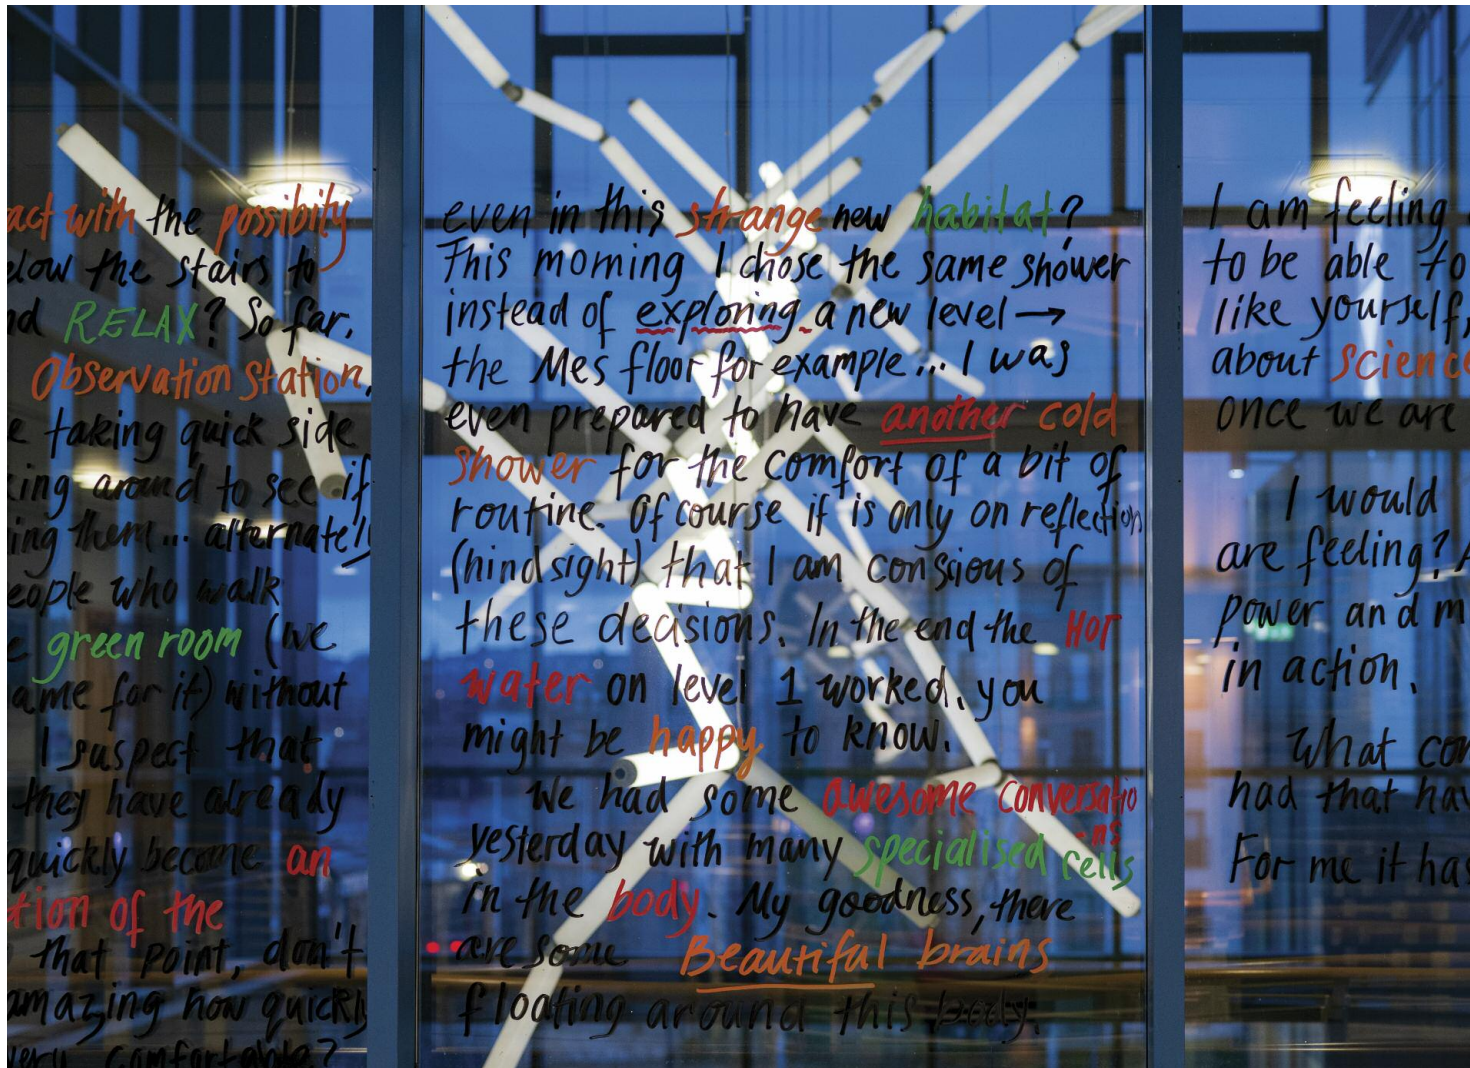 act with the possibity
elow the stairs to
nd RELAX? So far,
Observation Station,
e taking quick side
king around to see if
ing them... alternately
eople who walk
e green room (we
ame for it) without
I suspect that
they have already
quickly become an
tion of the
that point, don't
amazing how quickly
very comfortable?
even in this strange new habitat?
This morning I chose the same shower
instead of exploring a new level →
the Mes floor for example... I was
even prepared to have another cold
shower for the comfort of a bit of
routine. Of course it is only on reflection
(hindsight) that I am consious of
these decisions. In the end the Hot
water on level 1 worked, you
might be happy to know.
We had some awesome conversatio
-ns
yesterday with many specialised cells
in the body. My goodness, there
are some Beautiful brains
floating around this body.
I am feeling
to be able to
like yourself,
about science
once we are
I would
are feeling? A
power and m
in action.
What con
had that hav
For me it has